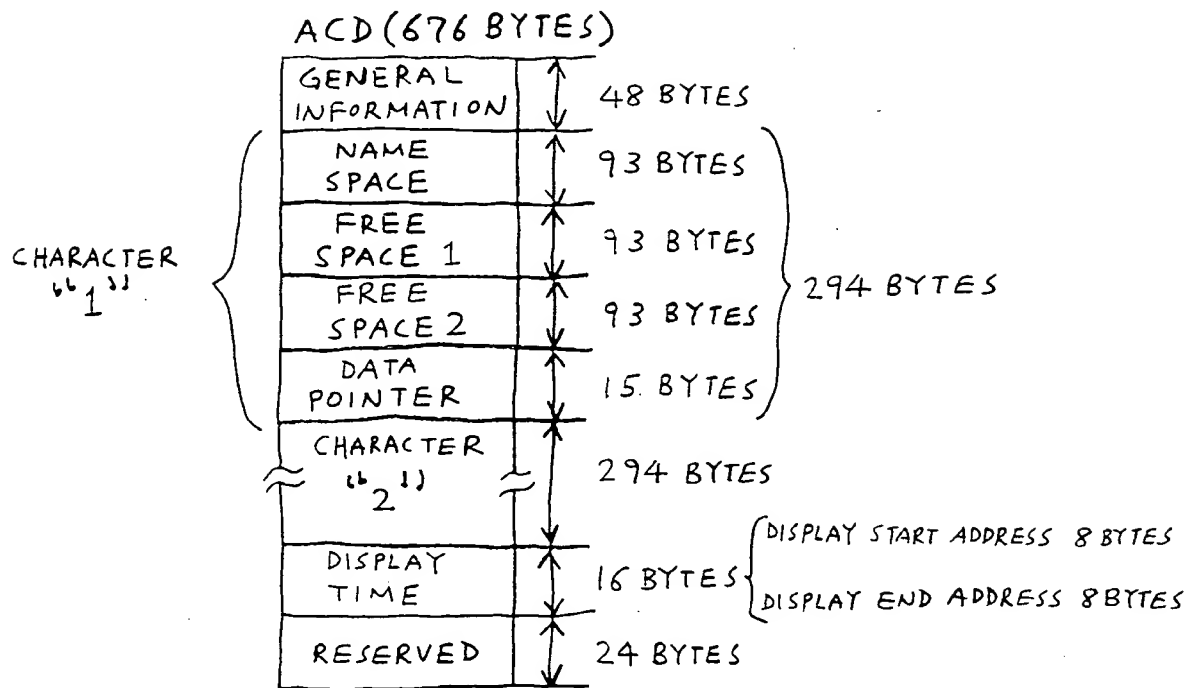 ACD (676 BYTES)
GENERAL
INFORMATION
48 BYTES
CHARACTER
"1"
NAME
SPACE
93 BYTES
FREE
SPACE 1
93 BYTES
FREE
SPACE 2
93 BYTES
DATA
POINTER
15. BYTES
294 BYTES
CHARACTER
"2"
294 BYTES
DISPLAY
TIME
16 BYTES
DISPLAY START ADDRESS 8 BYTES
DISPLAY END ADDRESS 8 BYTES
RESERVED
24 BYTES